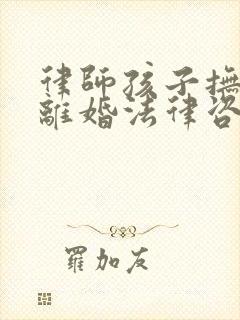 律師孩子撫
離婚法律咨
羅加友